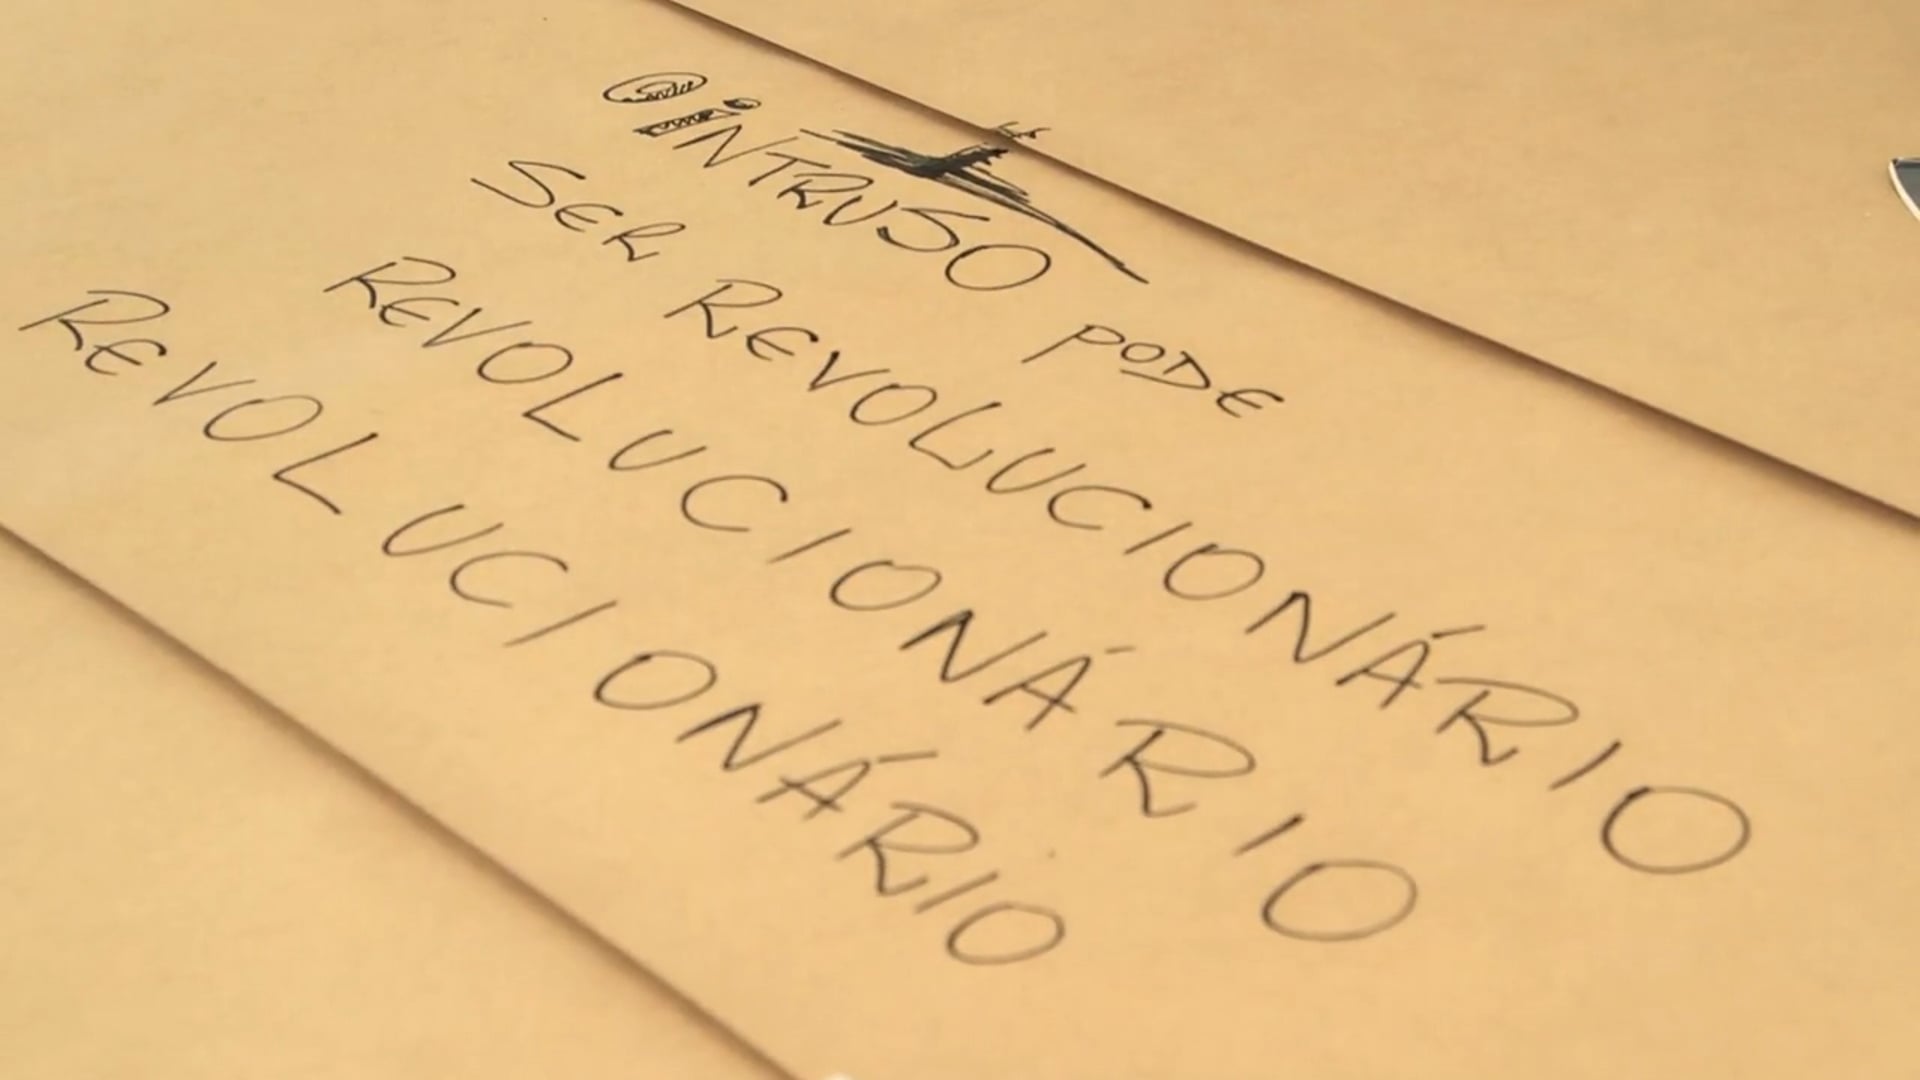 O INTRUSO PODE
SER REVOLUCIONÁRIO
REVOLUCIONÁRIO
REVOLUCIONÁRIO